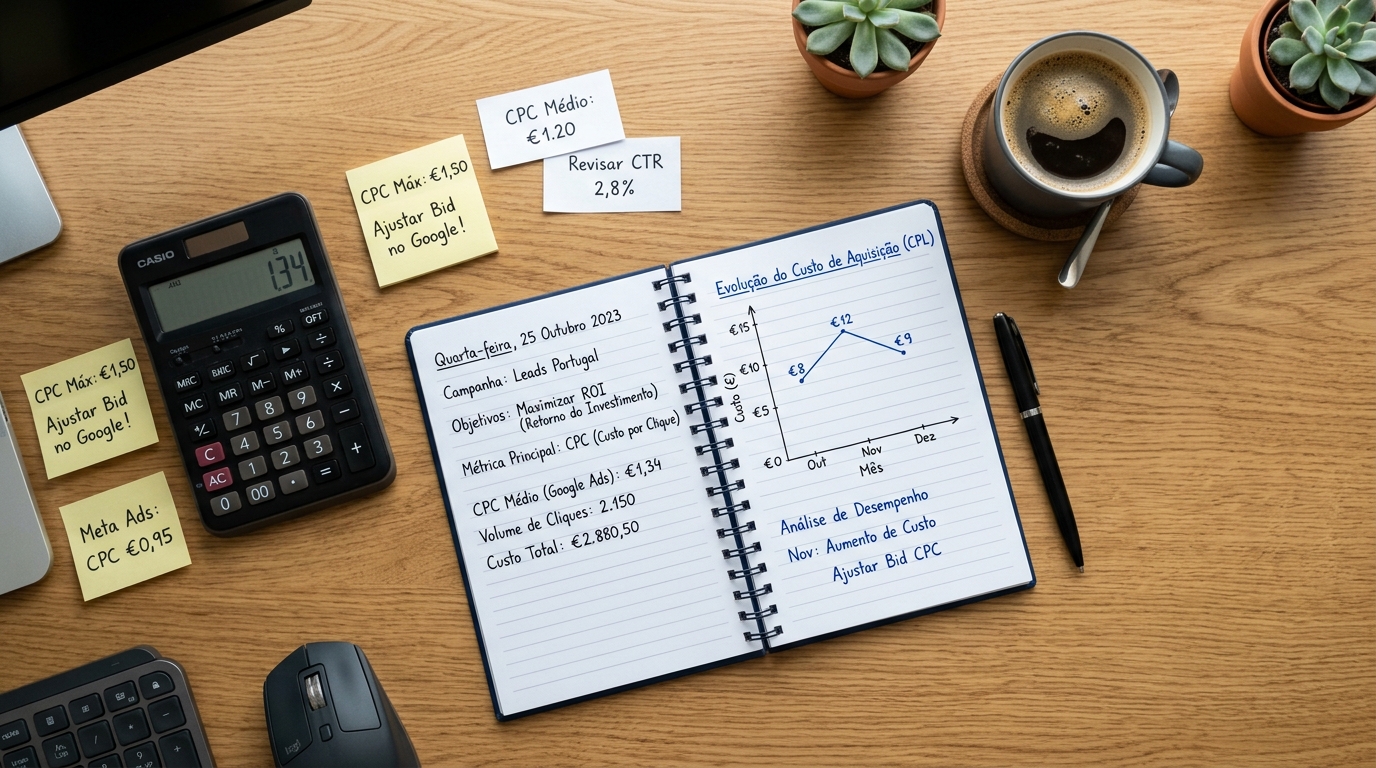 CPC Médio:
€1.20
Revisar CTR
2,8%
CPC Máx: €1,50
Ajustar Bid
no Google!
CASIO
134
%
OFT
MRC
√
÷
MC
MR
M-
M+
÷
×
7
8
9
−
C
4
5
6
+
AC
1
2
3
=
0
00
.
CPC Máx: €1,50
Ajustar Bid
no Google!
Meta Ads:
CPC €0,95
Quarta-feira, 25 Outubro 2023
Campanha: Leads Portugal
Objetivos: Maximizar ROI
(Retorno do Investimento)
Métrica Principal: CPC (Custo por Clique)
CPC Médio (Google Ads): €1,34
Volume de Cliques: 2.150
Custo Total: €2.880,50
Evolução do Custo de Aquisição (CPL)
€15
€12
€10
€9
€8
Custo (€)
€5
€0
Out
Nov
Dez
Mês
Análise de Desempenho
Nov: Aumento de Custo
Ajustar Bid CPC